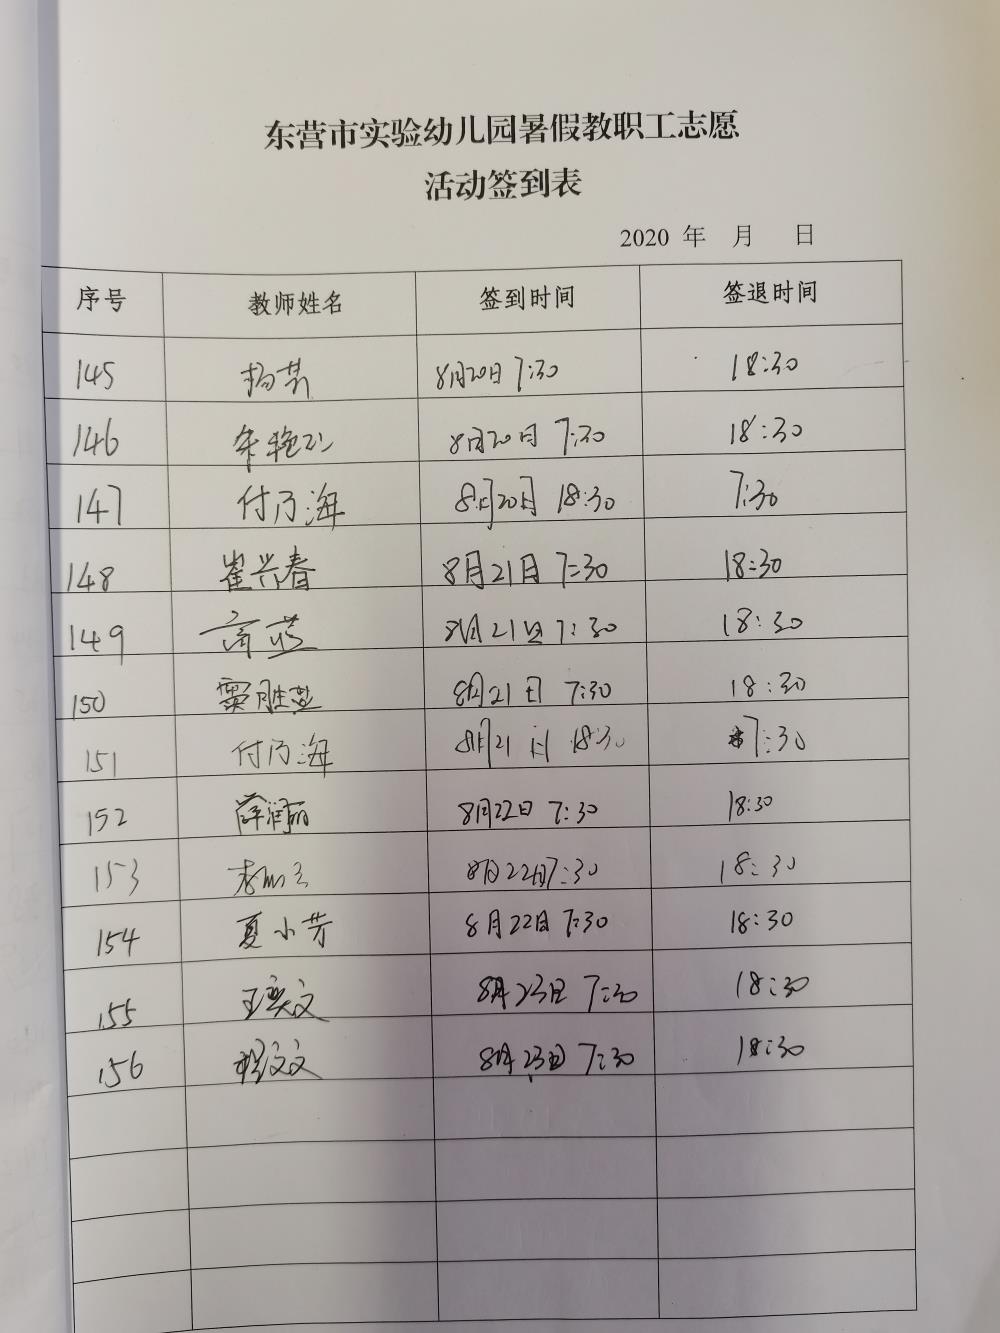 东营市实验幼儿园暑假教职工志愿
活动签到表
2020 年 月 日
序号 教师姓名 签到时间 签退时间
145 杨 8月20日 7:30 18:30
146 朱艳 8月20日 7:30 18:30
147 付乃海 8月20日 18:30 7:30
148 崔兴春 8月21日 7:30 18:30
149 高蕊 8月21日 7:30 18:30
150 窦胜燕 8月21日 7:30 18:30
151 付乃海 8月21日 18:30 7:30
152 薛润丽 8月22日 7:30 18:30
153 8月22日 7:30 18:30
154 夏小芳 8月22日 7:30 18:30
155 王奕文 8月23日 7:30 18:30
156 程文文 8月23日 7:30 18:30